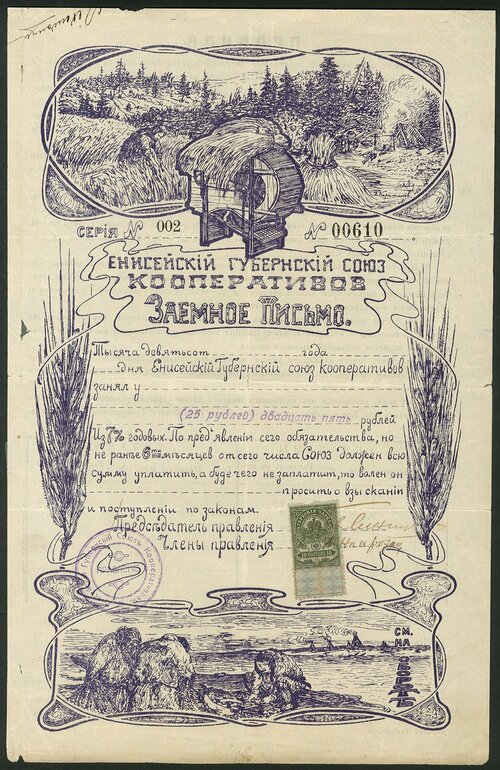 СЕРІЯ № 002 № 00610
ЕНИСЕЙСКІЙ ГУБЕРНСКІЙ СОЮЗ
КООПЕРАТИВОВ
ЗАЕМНОЕ ПИСЬМО.
Тысяча девятьсот года
дня Енисейскій Губернскій союз кооперативов
занял у
(25 рублей) двадцать пять рублей
Из 7% годовых. По пред'явленіи сего обязательства, но
не ранѣе 6ти мѣсяцев от сего числа Союз должен всю
сумму уплатить, а буде чего не заплатит, то волен он
просить о взысканіи
и поступленіи по законам.
Предсѣдатель правленія
Члены правленія
СМ.
НА
ОБОРОТѢ